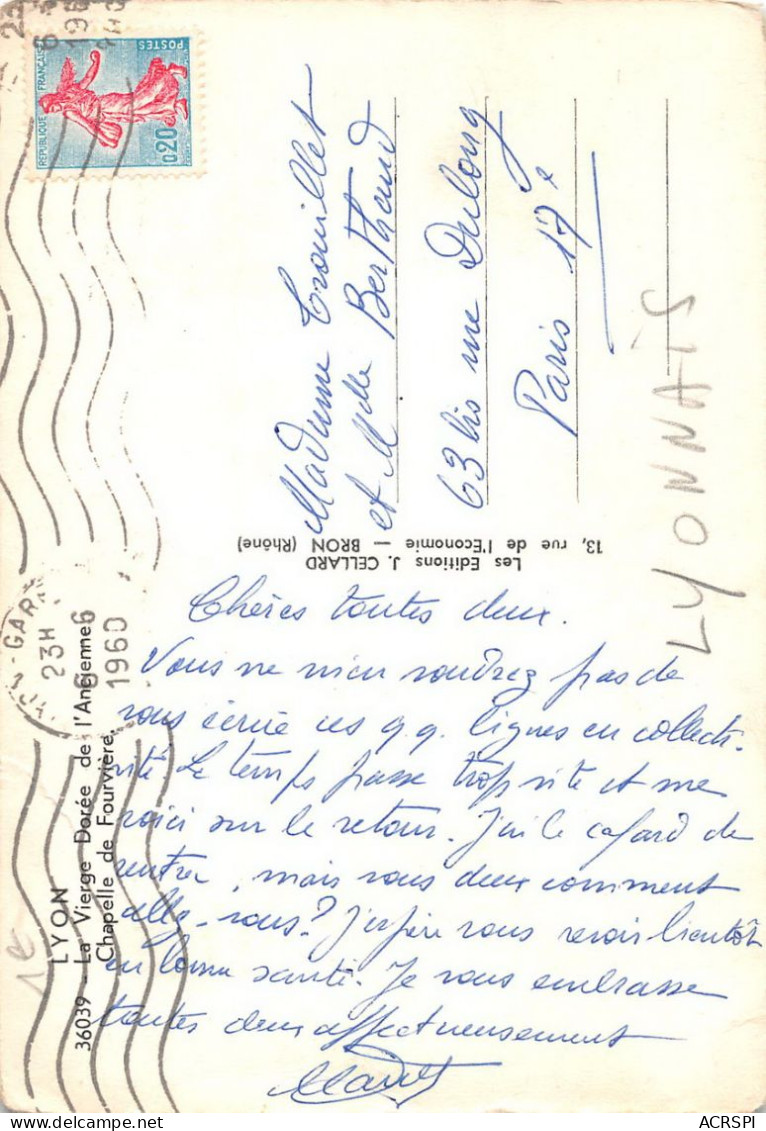 RÉPUBLIQUE FRANÇAISE
POSTES
0,20
GARE
23H
6-6
1960
LYON
36039 - La Vierge Dorée de l'Ancienne
Chapelle de Fourvière.
Les Editions J. CELLARD
13, rue de l'Economie — BRON (Rhône)
Madame Trouillet
et Mlle Berthaud
63 bis rue Dulong
Paris 17e
LYONNAIS
1€
Chères toutes deux.
Vous ne m'en voudrez pas de
vous écrire ces qq. lignes en collecti-
vité Le temps passe trop vite et me
voici sur le retour. J'ai le cafard de
rentrer, mais vous deux comment
allez-vous? J'espère vous revoir bientôt
en bonne santé. Je vous embrasse
toutes deux affectueusement
ACRSPI